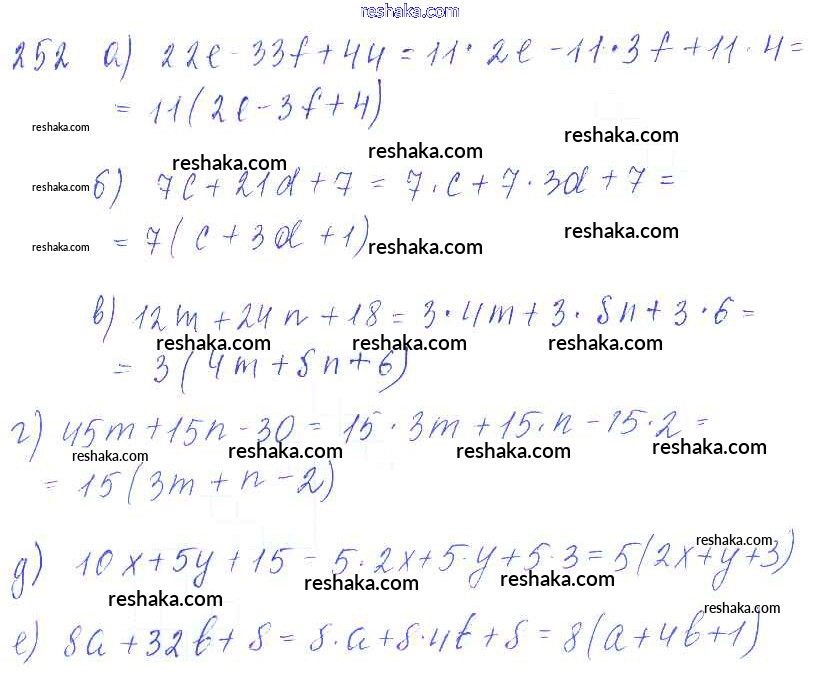 reshaka.com
252 а) 22e - 33f + 44 = 11 · 2e - 11 · 3f + 11 · 4 =
= 11(2e - 3f + 4)
reshaka.com
reshaka.com
reshaka.com
reshaka.com
reshaka.com
б) 7c + 21d + 7 = 7 · c + 7 · 3d + 7 =
reshaka.com
reshaka.com
= 7(c + 3d + 1)
reshaka.com
в) 12m + 24n + 18 = 3 · 4m + 3 · 8n + 3 · 6 =
reshaka.com
reshaka.com
reshaka.com
= 3(4m + 8n + 6)
г) 45m + 15n - 30 = 15 · 3m + 15 · n - 15 · 2 =
reshaka.com
reshaka.com
reshaka.com
= 15(3m + n - 2)
reshaka.com
д) 10x + 5y + 15 = 5 · 2x + 5 · y + 5 · 3 = 5(2x + y + 3)
reshaka.com
reshaka.com
reshaka.com
reshaka.com
е) 8a + 32b + 8 = 8 · a + 8 · 4b + 8 = 8(a + 4b + 1)